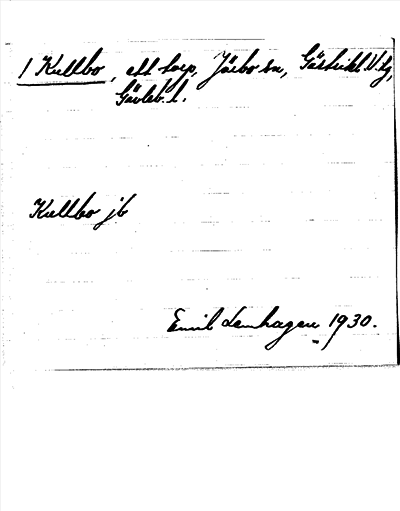 1 Kullbo, ett torp, Järbo sn, Gästrikl. V. tg,
Gävleb. l.
Kullbo jb
Emil Lenhagen 1930.